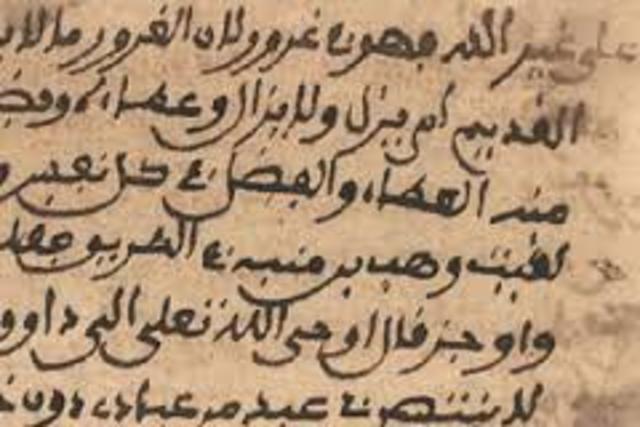 على غير الله فهو في غرور ولان الغرور ما لا
القديم لم يزل ولا يزال وعطاءه وفضـ
منه العطاء والفضل في كل نفس و
لقيت وهب بن منبه في الطريق فقلـ
واوجز قال اوحى الله تعلى الى داوو
لا ينتصر في عبد من عبادي دون